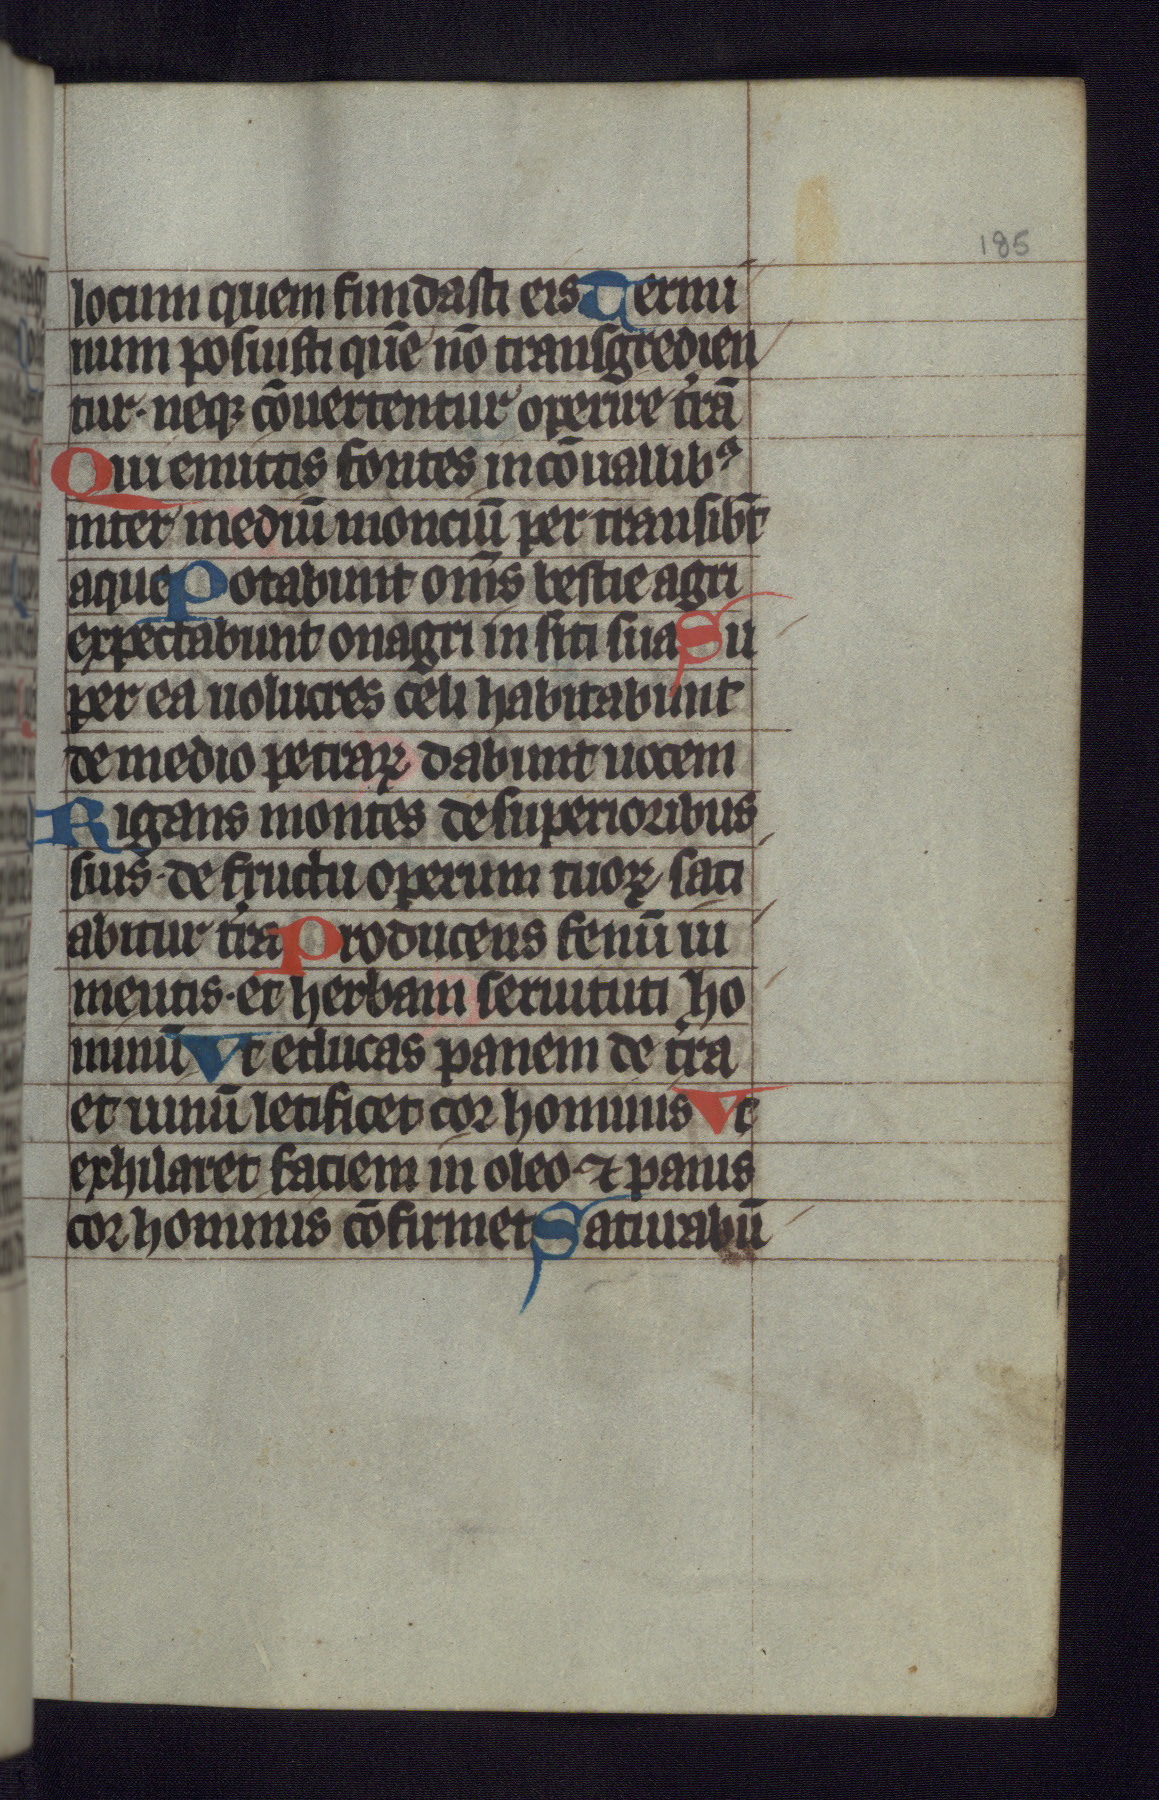 185
locum quem fundasti eis Termi
num posuisti quē nō transgredien
tur · neqꝫ cōuertentur operire t̄rā
Qui emittis fontes in cōuallibꝰ
inter mediū monciū per transibūt
aque Potabunt om̄s bestie agri
expectabunt onagri in siti sua Su
per ea uolucres celi habitabunt
de medio petraꝝ dabunt uocem
Rigans montes de superioribus
suis · de fructu operum tuoꝝ sati
abitur t̄ra Producens fenū iu
mentis · et herbam seruituti ho
minū Vt educas panem de t̄ra
et uinū letificet cor hominis Vt
exhilaret faciem in oleo · ⁊ panis
cor hominis cōfirmet Saturabū